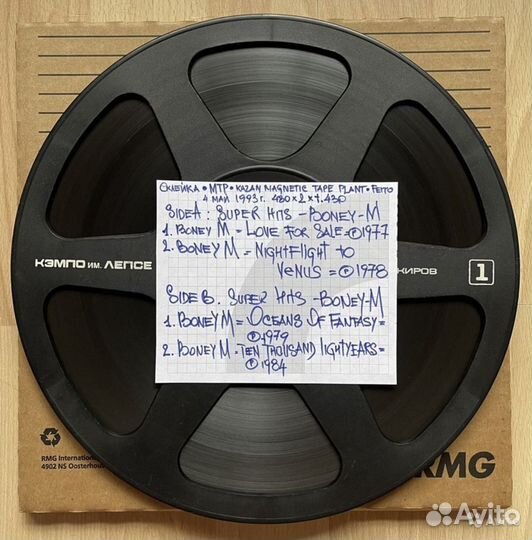 Склейка • МТР • KAZAN MAGNETIC TAPE PLANT • FEITO
4 МАЙ 1993г. 480x2x1.430
SIDE A: SUPER HITS - BONEY-M
1. BONEY M - LOVE FOR SALE = ℗ 1977
2. BONEY M = NIGHTFLIGHT TO
VENUS = ℗ 1978
SIDE B. SUPER HITS - BONEY-M
1. BONEY M = OCEANS OF FANTASY =
℗ 1979
2. BONEY M - TEN THOUSAND LIGHTYEARS =
℗ 1984
КЭМПО ИМ. ЛЕПСЕ
КИРОВ
1
RMG International
4902 NS Oosterhout
RMG
Avito